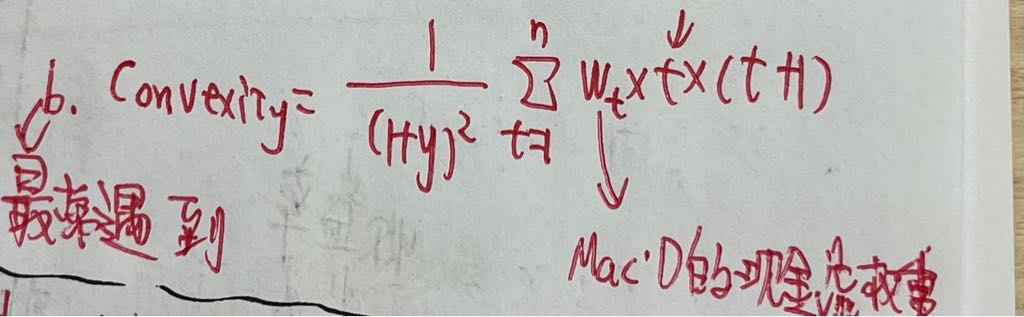 b. Convexity = \frac{1}{(1+y)^2} \sum_{t=1}^{n} W_t × t × (t+1)
最常遇到
Mac'D的现金流权重